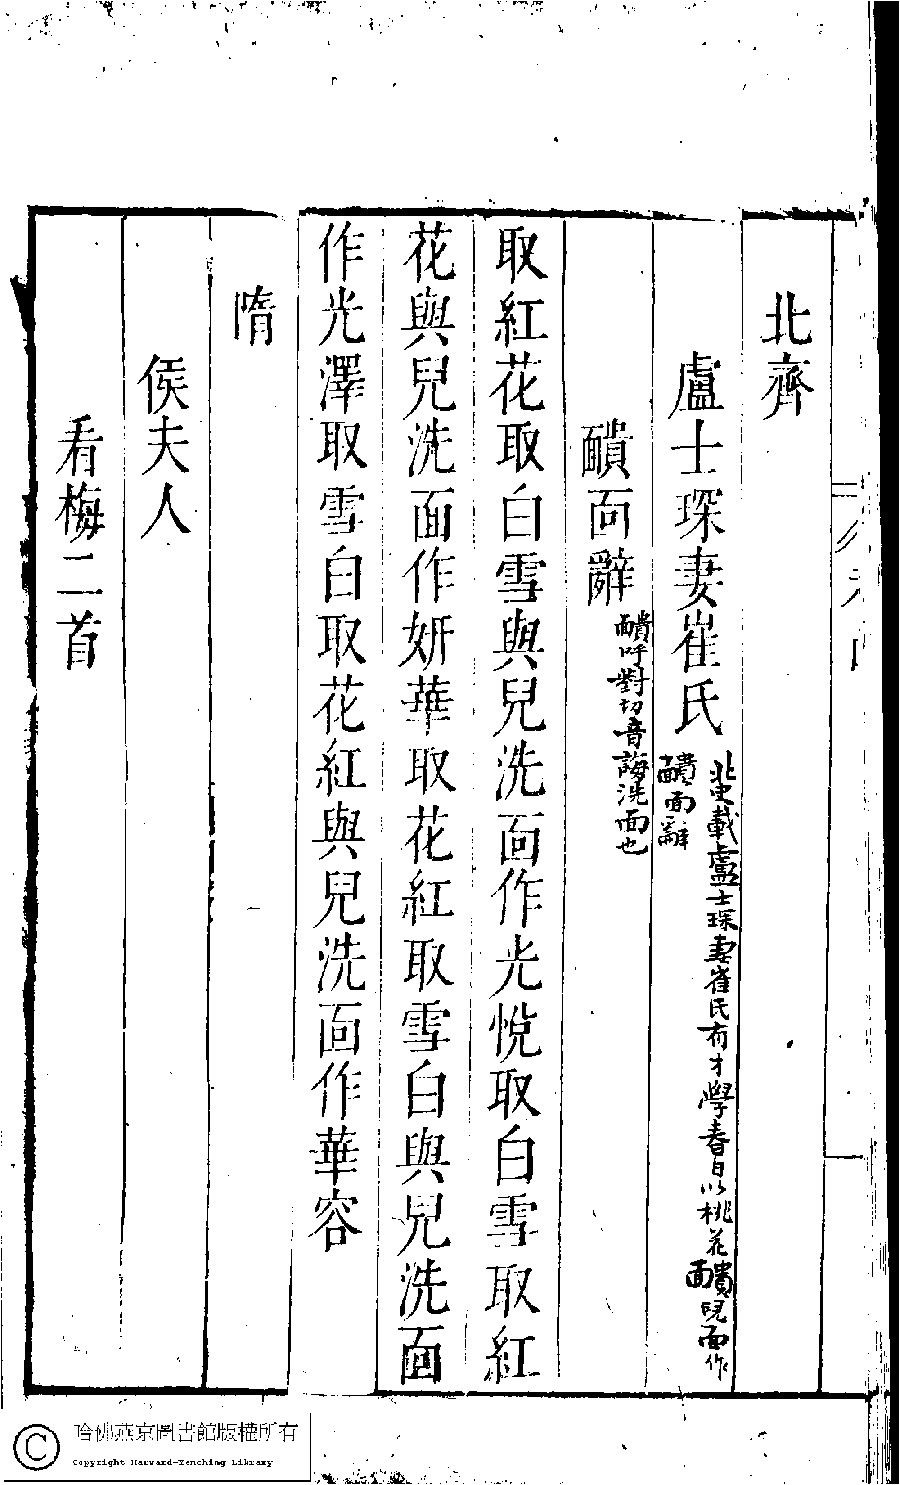 北齊
盧士琛妻崔氏
北史載盧士琛妻崔氏有才學春日以桃花靧兒面作
靧面辭
靧面辭
靧呼對切音誨洗面也
取紅花取白雪與兒洗面作光悅取白雪取紅
花與兒洗面作妍華取花紅取雪白與兒洗面
作光澤取雪白取花紅與兒洗面作華容
隋
侯夫人
看梅二首
哈佛燕京圖書館版權所有
Copyright Harvard-Yenching Library